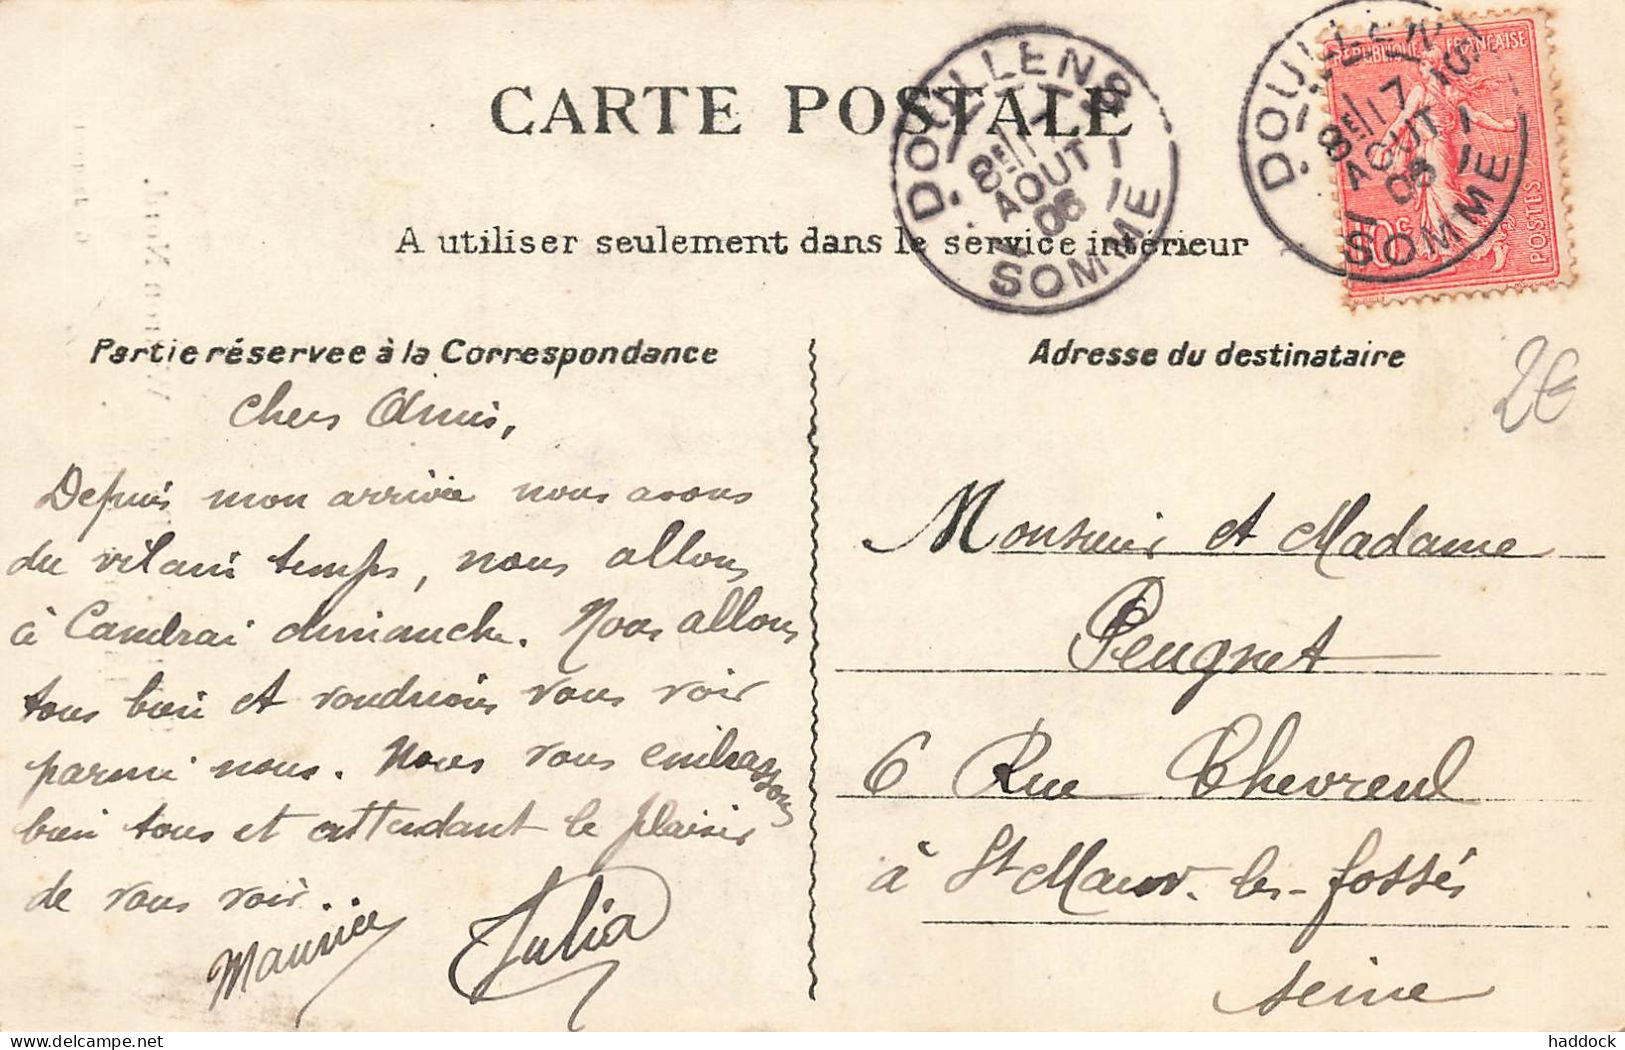 CARTE POSTALE
A utiliser seulement dans le service intérieur
DOULLENS
8E/17
AOUT
06
SOMME
DOULLENS
8E/17
AOUT
06
SOMME
REPUBLIQUE FRANÇAISE
10c
POSTES
Partie réservee à la Correspondance
Adresse du destinataire
2€
Chers Amis,
Depuis mon arrivée nous avons
du vilain temps, nous allons
à Cambrai dimanche. Nous allons
tous bien et voudrions vous voir
parmi nous. Nous vous embrassons
bien tous et attendant le plaisir
de vous voir.
Maurice Julia
Monsieur et Madame
Peugnet
6 Rue Chevreul
à St Maur-les-fossés
Seine
haddock